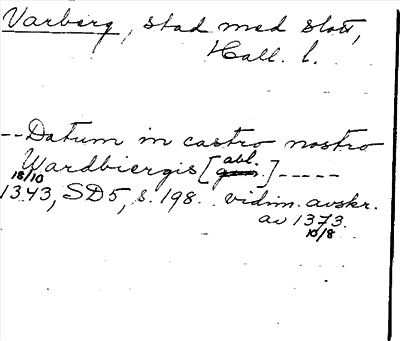 Varberg, stad med slott,
Hall. l.
--Datum in castro nostro
Wardbiergis [abl.] -----
18/10
1343, SD5, s. 198. vidim. avskr.
av 1373.
10/8